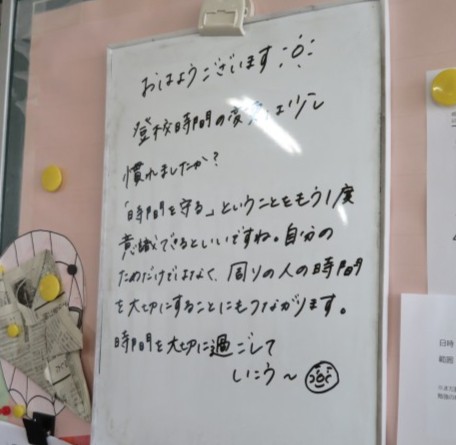 おはようございます
登校時間の変更は少し
慣れましたか?
「時間を守る」ということをもう1度
意識できるといいですね。自分の
ためだけではなく、周りの人の時間
を大切にすることにもつながります。
時間を大切に過ごして
いこう～
日時
範囲